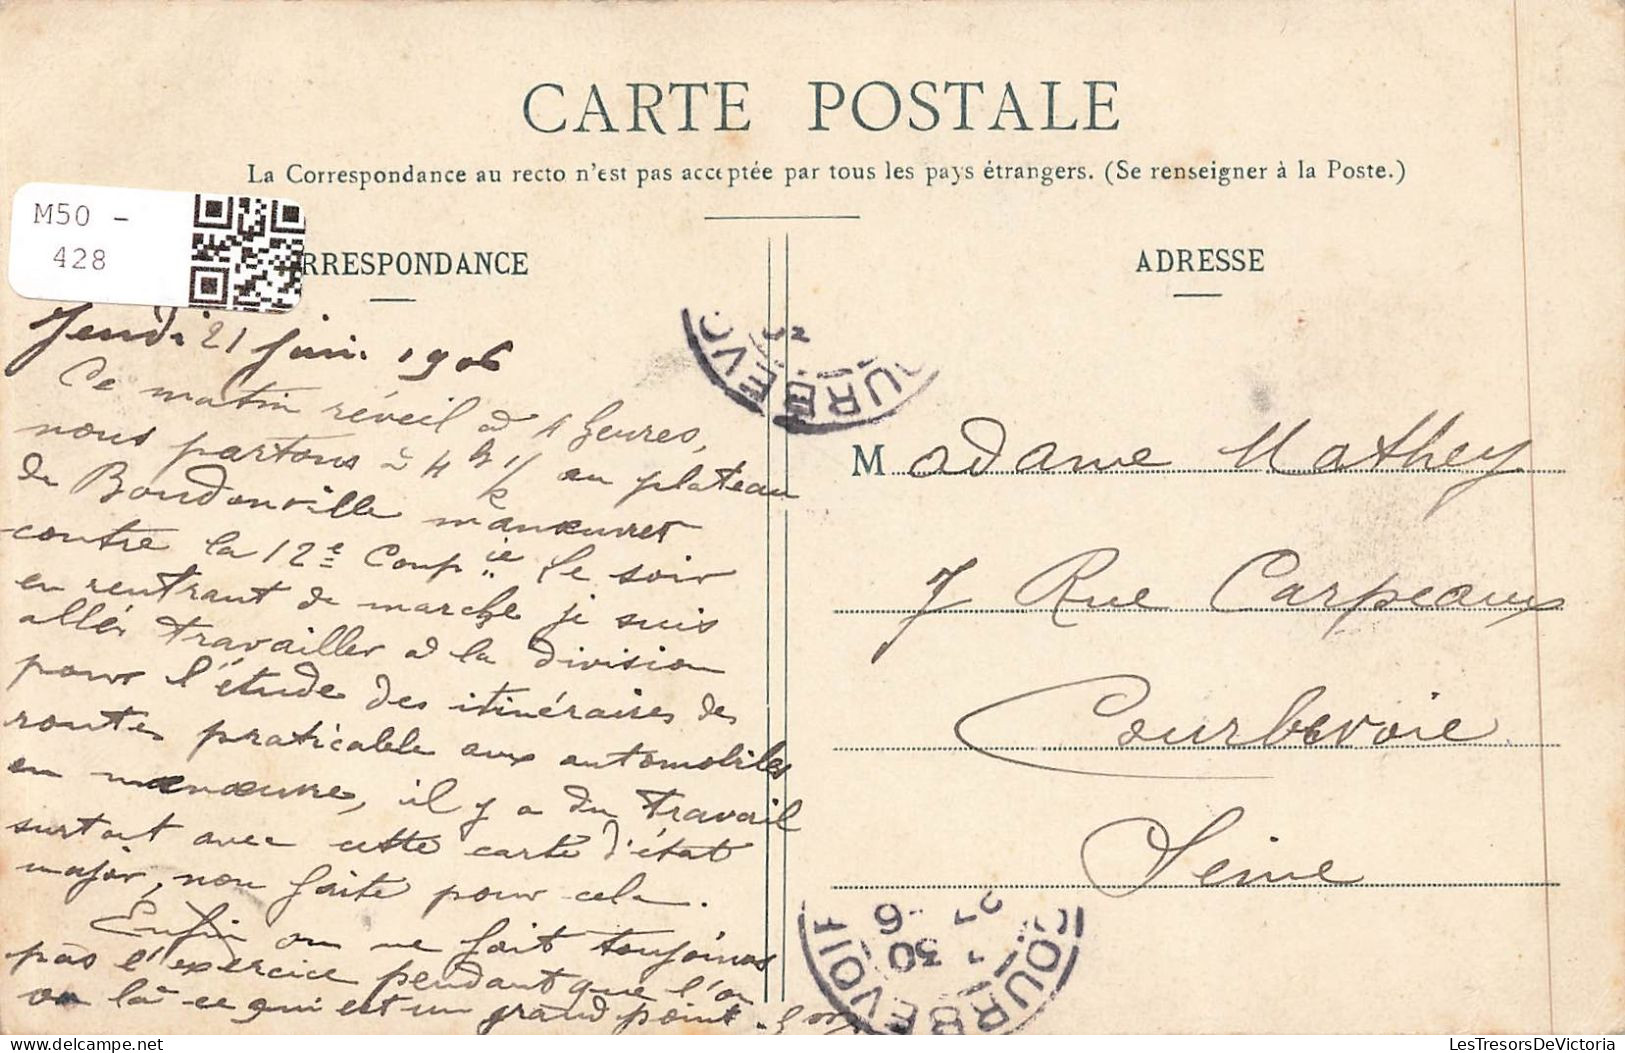 CARTE POSTALE
La Correspondance au recto n'est pas acceptée par tous les pays étrangers. (Se renseigner à la Poste.)
M50 -
428
RRESPONDANCE
Jeudi 21 juin 1906
Ce matin réveil à 4 heures,
nous partons à 4 h 1/2 au plateau
de Boudonville manœuvrer
contre la 12e Comp ie le soir
en rentrant de marche je suis
allé travailler à la division
pour l'étude des itinéraires des
routes praticable aux automobiles
en manœuvre, il y a du travail
surtout avec cette carte d'état
major, non faite pour cela.
Enfin on ne fait toujours
pas l'exercice pendant que l'on
est là ce qui est un grand point.
ADRESSE
Madame Mathey
7 Rue Carpeaux
Courbevoie
Seine
COURBEVOIE
COURBEVOIE
30
6
LesTresorsDeVictoria